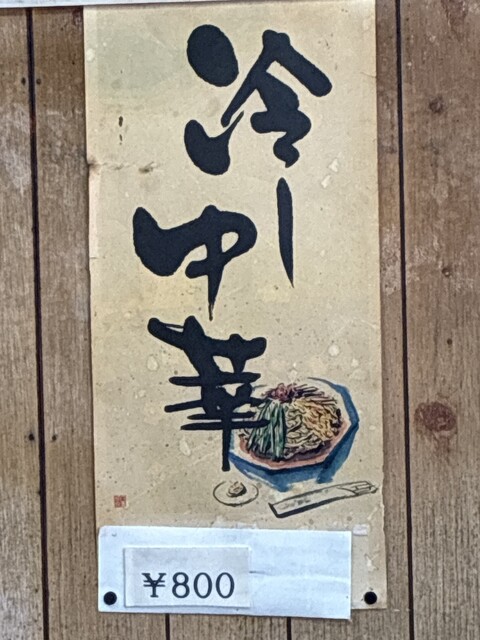 冷中華
¥800